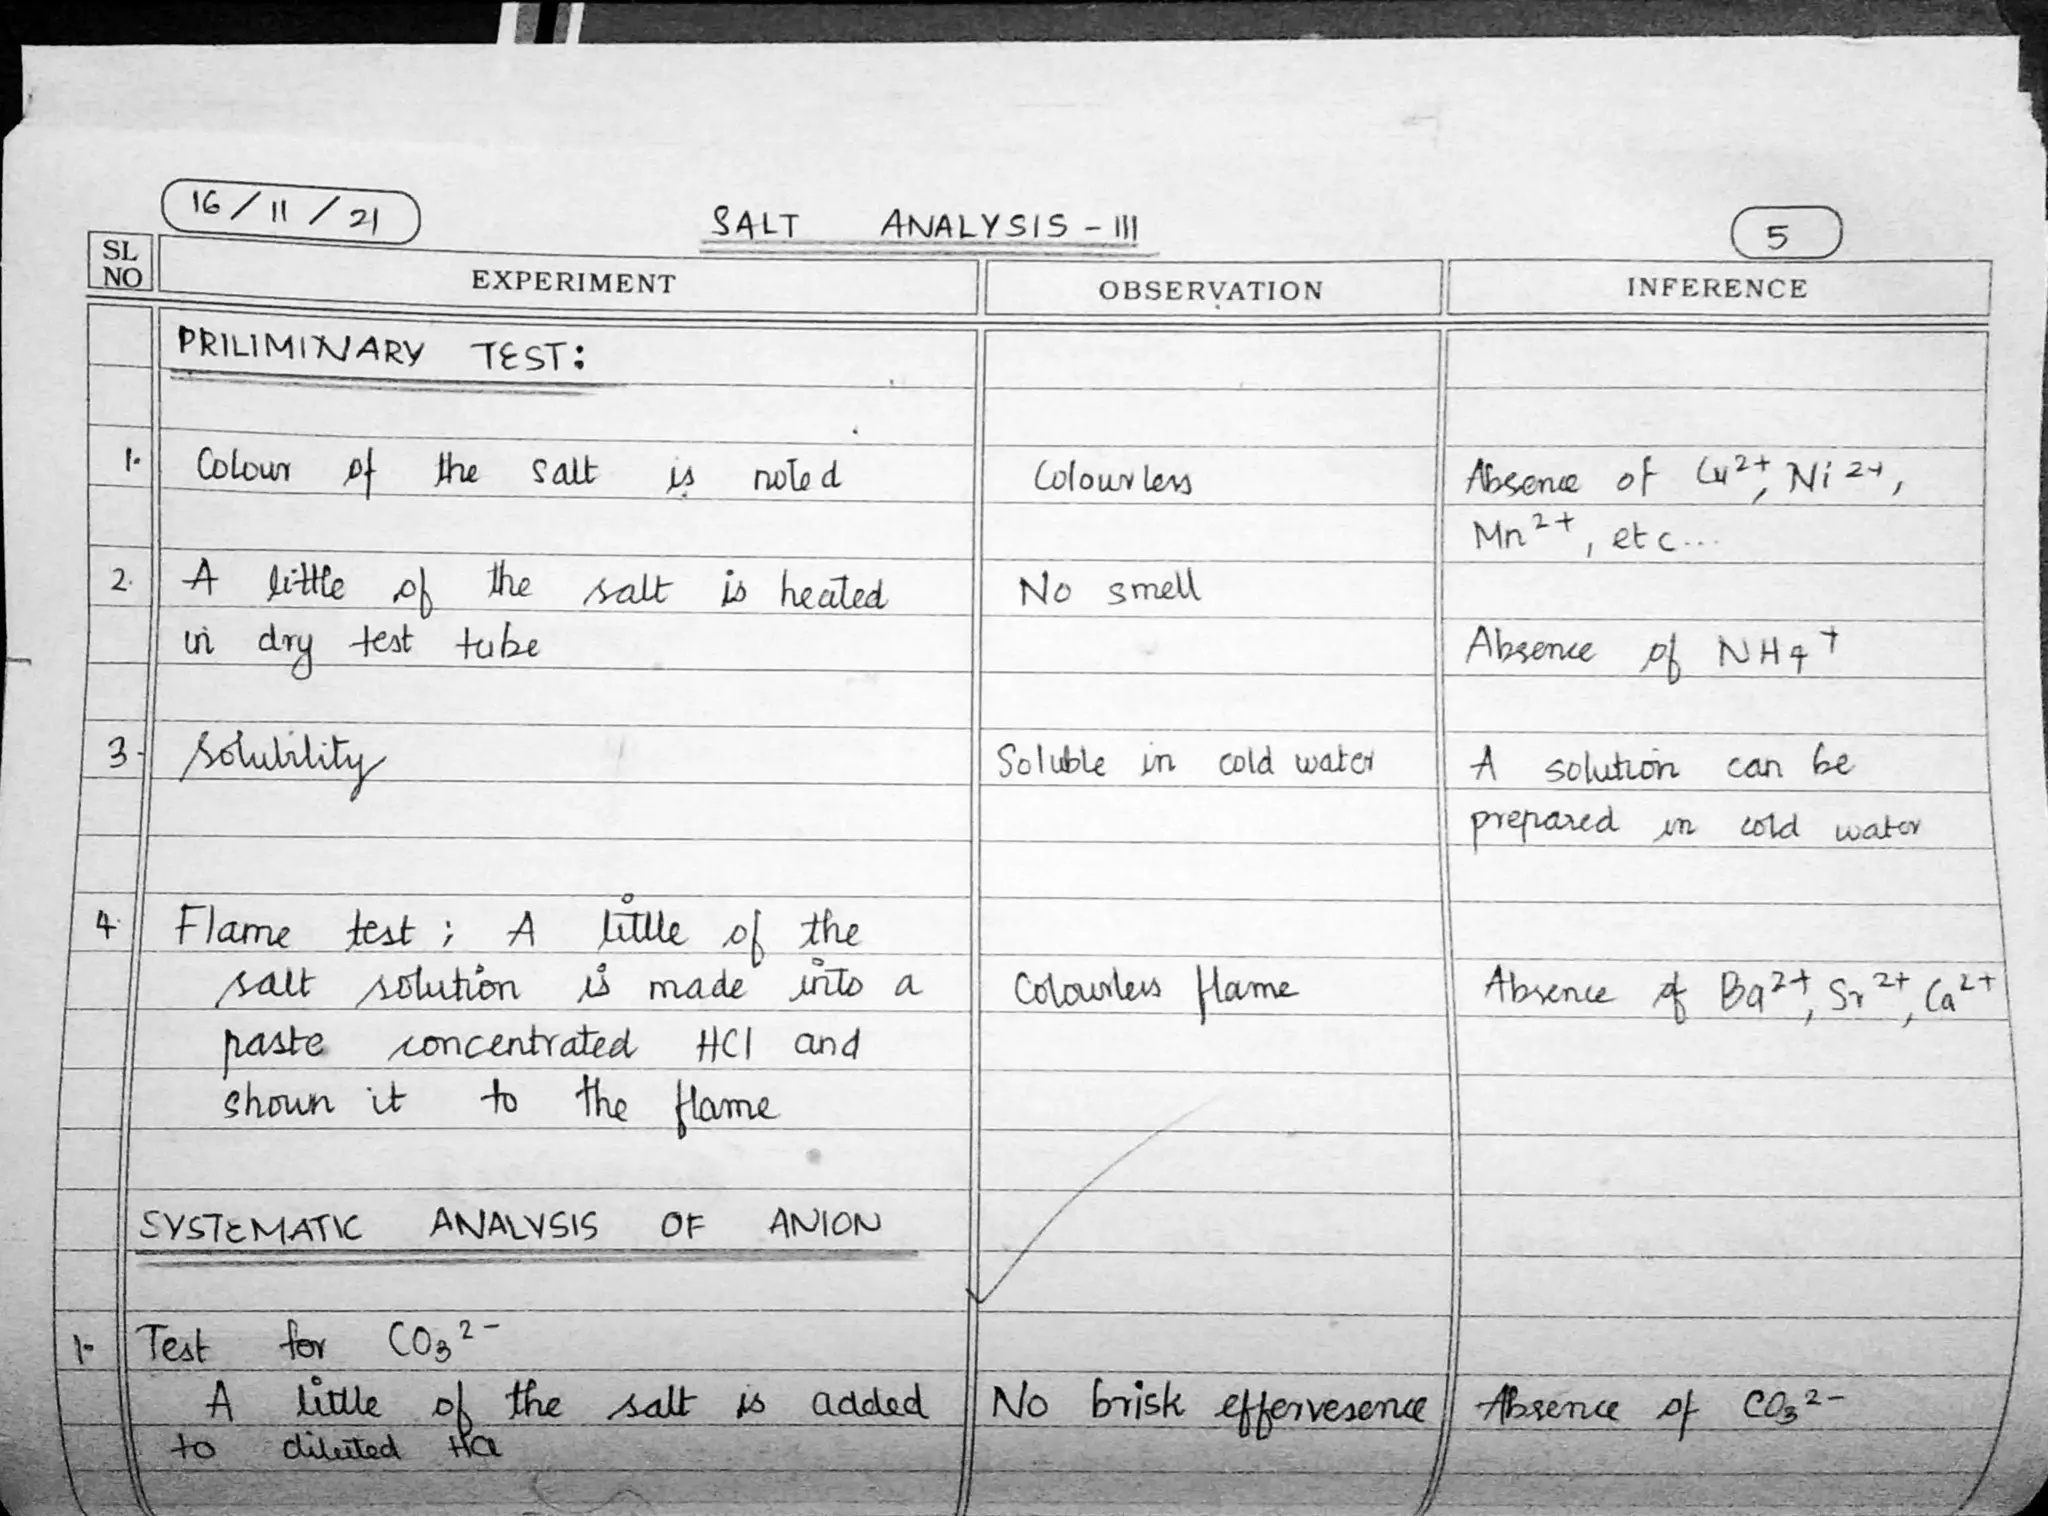 16/11/21 SALT ANALYSIS - III 5
SL NO EXPERIMENT OBSERVATION INFERENCE
PRILIMINARY TEST:
1. Colour of the salt is noted Colourless Absence of Cu2+, Ni2+,
Mn2+, etc...
2. A little of the salt is heated No smell
in dry test tube Absence of NH4+
3. Solubility Soluble in cold water A solution can be
prepared in cold water
4. Flame test ; A little of the
salt solution is made into a Colourless flame Absence of Ba2+, Sr2+, Ca2+
paste concentrated HCl and
shown it to the flame
SYSTEMATIC ANALYSIS OF ANION
1. Test for CO3 2-
A little of the salt is added No brisk effervesence Absence of CO3 2-
to diluted HCl